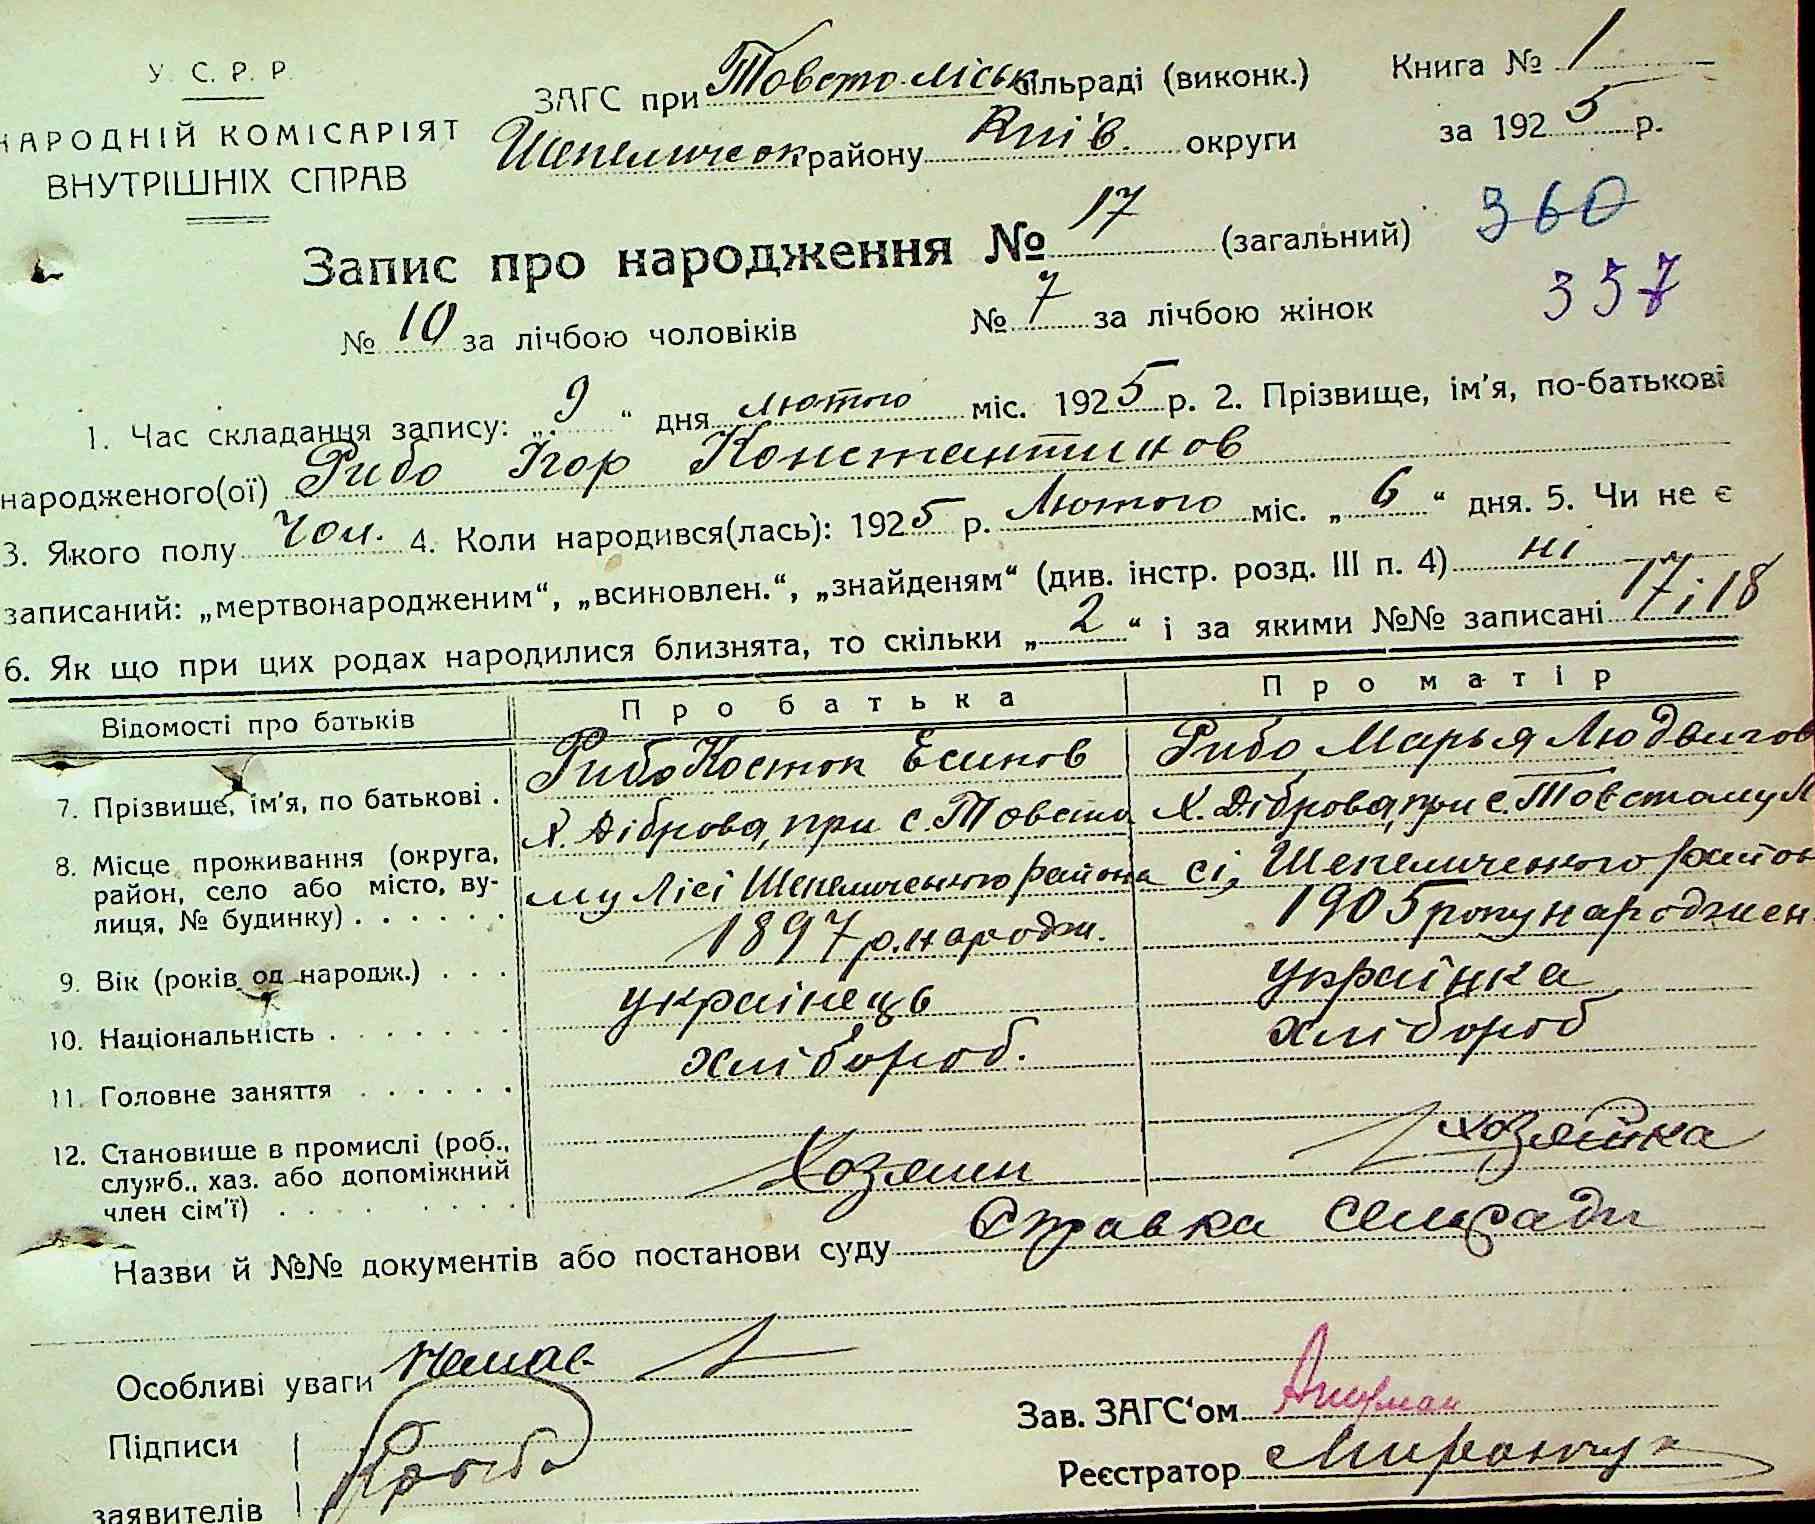 У. С. Р. Р.
НАРОДНІЙ КОМІСАРІЯТ
ВНУТРІШНІХ СПРАВ
ЗАГС при Товстоліськ сільраді (виконк.)
Шепелическ. району Київ. округи
Книга № 1
за 1925 р.
Запис про народження № 17 (загальний)
360
357
№ 10 за лічбою чоловіків № 7 за лічбою жінок
1. Час складання запису: „9“ дня лютого міс. 1925 р. 2. Прізвище, ім'я, по-батькові
народженого(ої) Рибо Ігор Константинов
3. Якого полу Чол. 4. Коли народився(лась): 1925 р. Лютого міс. „6“ дня. 5. Чи не є
записаний: „мертвонародженим“, „всиновлен.“, „знайденям“ (див. інстр. розд. III п. 4) ні
6. Як що при цих родах народилися близнята, то скільки „2“ і за якими №№ записані 17 і 18
Відомості про батьків Про батька Про матір
7. Прізвище, ім'я, по батькові . Рибо Косток Есипов Рибо Марья Людвигов
8. Місце проживання (округа, район, село або місто, вулиця, № будинку) . . . . . .
Х. Діброва, при с. Товсто
му Лісі Шепеличенкого района
Х. Діброва, при с. Товстому Лі
сі, Шепеличенкого район
9. Вік (років од народж.) . . . 1897 р. народж. 1905 року народжен
10. Національність . . . . . . . українець українка
11. Головне заняття . . . . . . хлібороб. хлібороб
12. Становище в промислі (роб., служб., хаз. або допоміжний член сім'ї) . . . . . . . .
Хозяин хозяйка
Назви й №№ документів або постанови суду Справка сельради
Особливі уваги немає
Підписи
заявителів
Зав. ЗАГС'ом
Реєстратор Миранчук